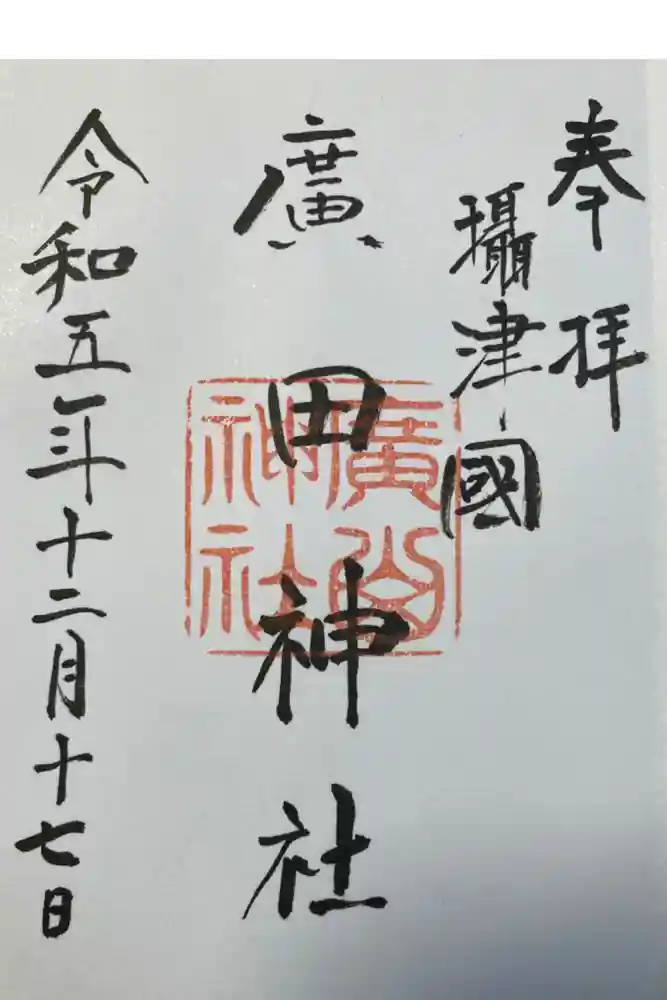 奉拝
攝津國
廣田神社
令和五年十二月十七日